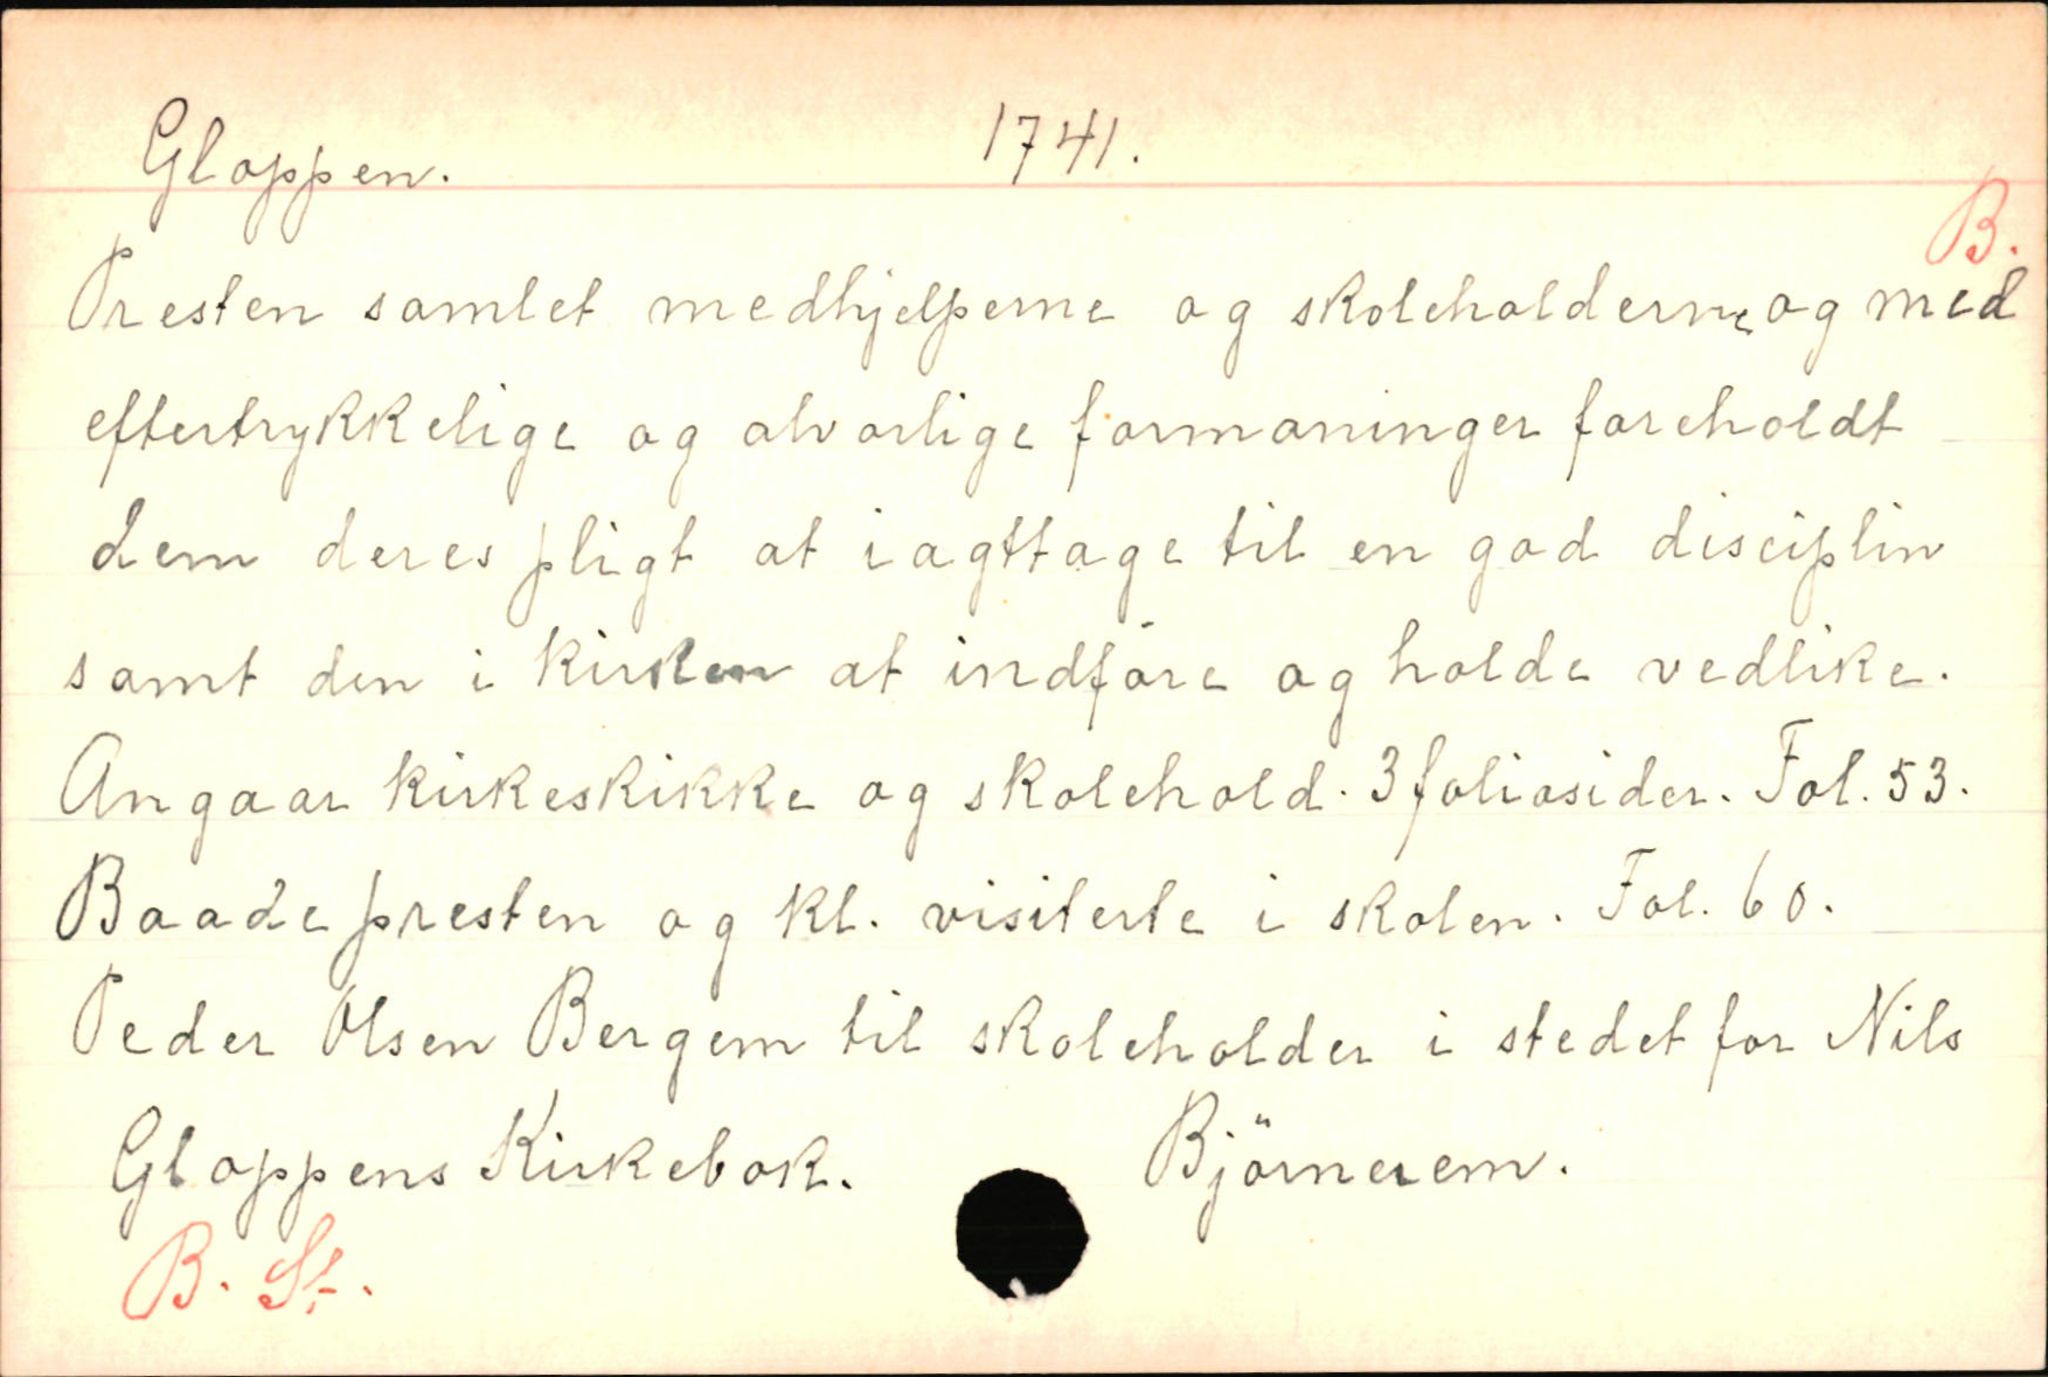 Gloppen. 1741.
B.
Presten samlet medhjelperne og skoleholderne og med
eftertrykkelige og alvorlige formaninger foreholdt
dem deres pligt at iagttage til en god disciplin
samt den i kirken at indføre og holde vedlike.
Angaar kirkeskikke og skolehold. 3 foliosider. Fol. 53.
Baade presten og kl. visiterte i skolen. Fol. 60.
Peder Olsen Bergem til skoleholder i stedet for Nils
Gloppens Kirkebok. Björnerem.
B. St.